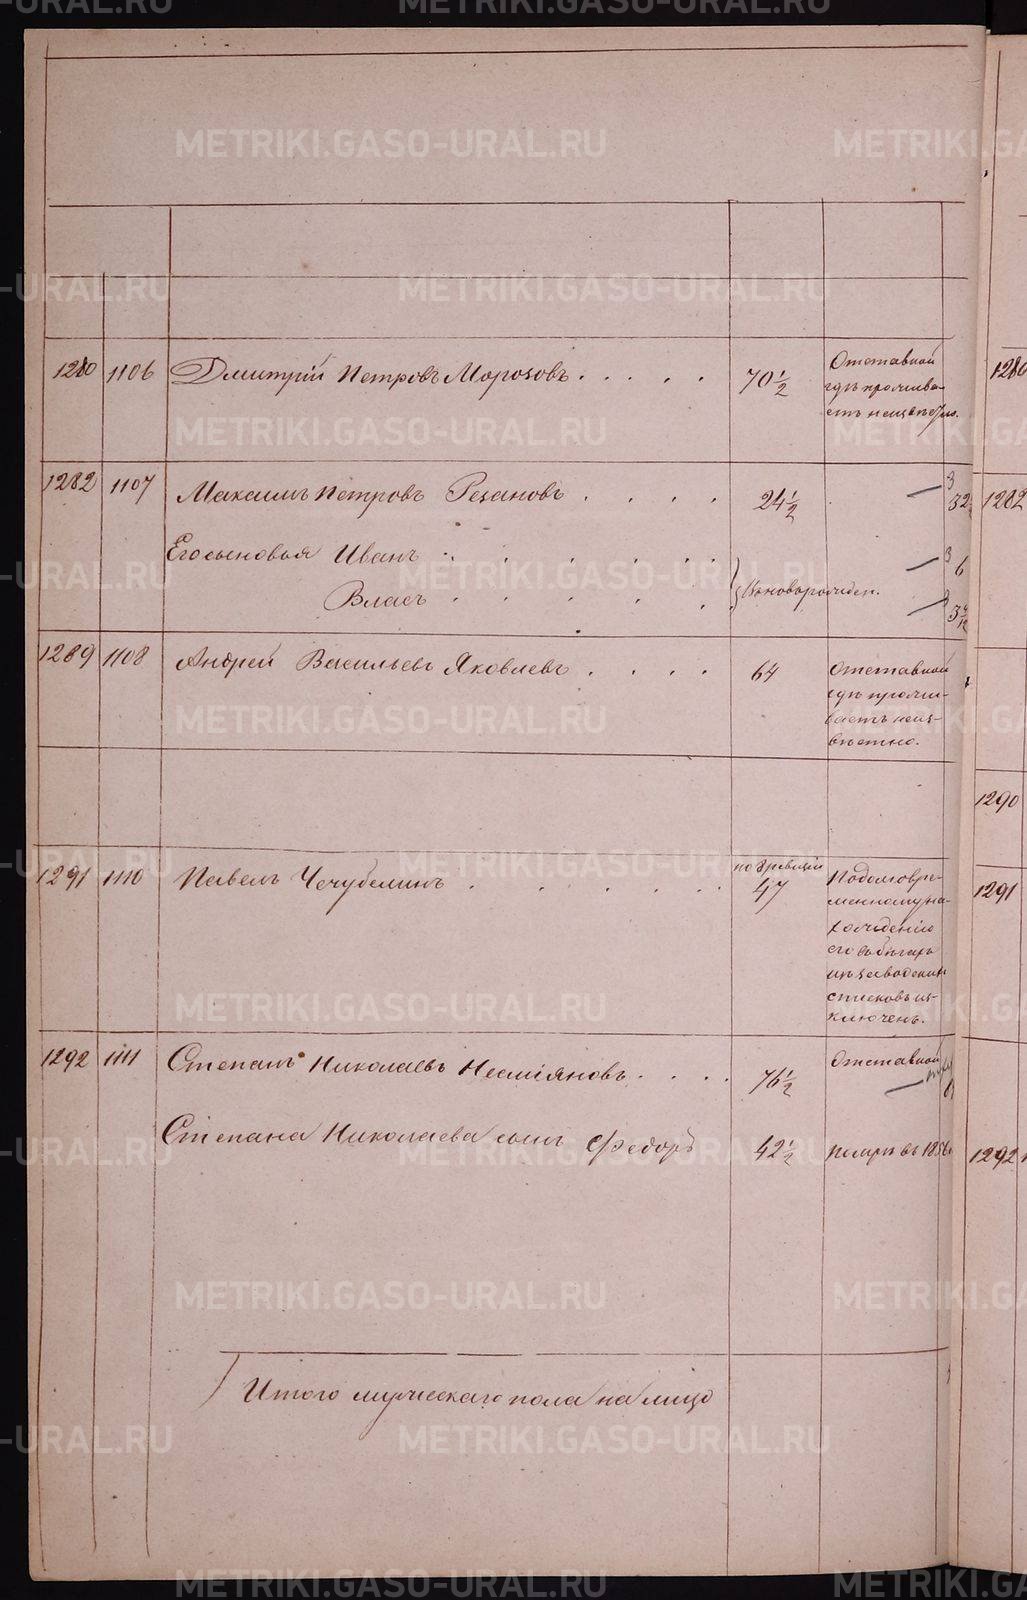 1280 1106 Дмитрій Петровъ Морозовъ . . . . . 70 1/2 Отставной
гдѣ прожива-
етъ неизвѣстно.
1280
1282 1107 Максимъ Петровъ Резановъ . . . . 24 1/2 — 3 32
1282
Его сыновья Иванъ . . . . . . — 3 6
Власъ . . . . . . } Новорожден. — 3
1289 1108 Андрей Васильевъ Яковлевъ . . . . 64 Отставной
гдѣ прожи-
ваетъ неиз-
вѣстно.
1290
1291 1110 Павелъ Чечубелинъ . . . . . . по ревизіи 47 По долговре-
менному на-
хожденію
его въ бѣгахъ
изъ заводскихъ
списковъ ис-
ключенъ.
1291
1292 1111 Степанъ Николаевъ Несміяновъ . . . . 76 1/2 Отставной
Степана Николаева сынъ Федоръ 42 1/2 померъ въ 185
1292
Итого мужескаго пола на лицо
METRIKI.GASO-URAL.RU